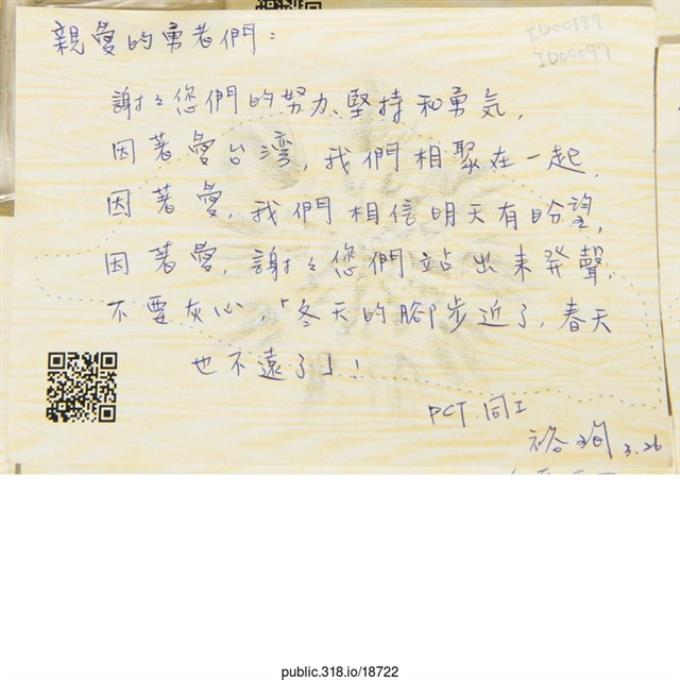 ID00189
ID00097
親愛的勇者們：
謝謝您們的努力、堅持和勇氣，
因著愛台湾，我們相聚在一起，
因著愛，我們相信明天有盼望，
因著愛，謝謝您們站出來発聲，
不要灰心，「冬天的腳步近了，春天
也不遠了」！
PCT 同工
3.26
public.318.io/18722